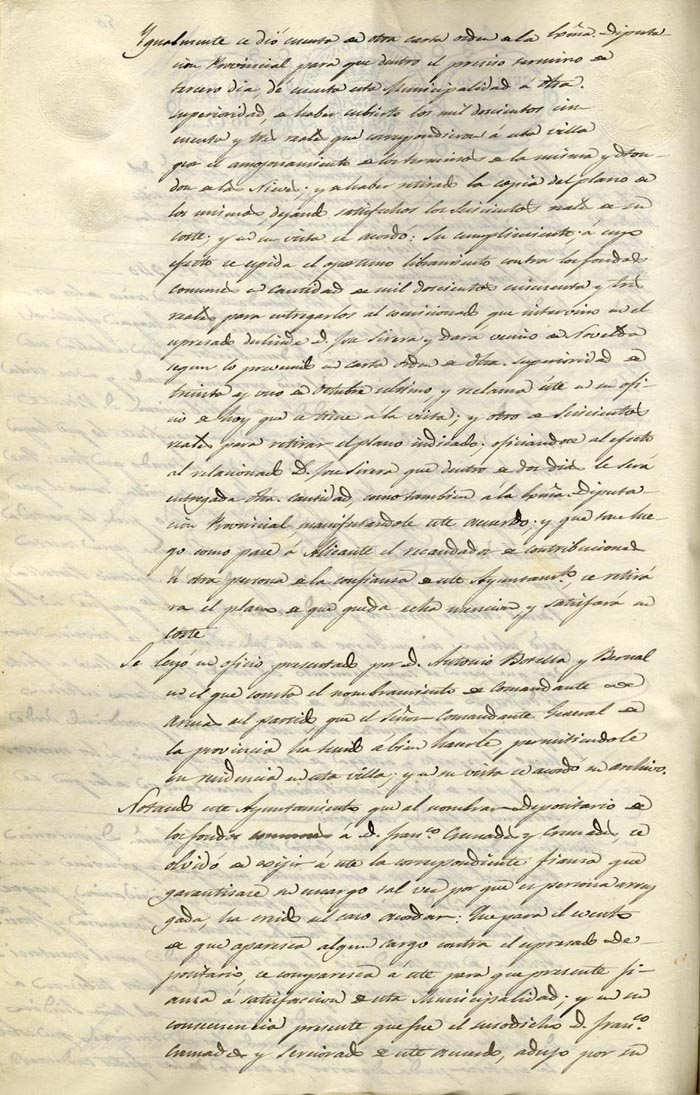 Ygualmente se dió cuenta de otra carta orden de la Exma. Diputa
cion Provincial para que dentro el preciso termino de
tercero dia, dé cuenta esta Municipalidad á dha.
superioridad, de haber cubierto los mil doscientos cin
cuenta y tres reales que correspondieron á esta villa
por el amojonamiento de los terminos de la misma y
de las Nieves; y de haber retirado la copia del plano de
los mismos dejando satisfechos los seiscientos reales de su
coste; y en su vista se acordó: Su cumplimiento, á cuyo
efecto se espida el oportuno libramiento contra los fondos
comunes en cantidad de mil doscientos cincuenta y tres
reales para entregarlos al comisionado que intervino en el
espresado deslinde D. Jose Sirera y Dara vecino de Novelda
segun lo prevenido en carta orden de dha. superioridad de
treinta y uno de Octubre ultimo, y reclama este en su ofi
cio de hoy que se tiene a la vista; y otro de seiscientos
reales para retirar el plano indicado: oficiandose al efecto
al relacionado D. Jose Sirera que dentro de dos dias le sera
entregada dha. cantidad como tambien a la Exma. Diputa-
cion Provincial, manifestandole este acuerdo: y que tan lue-
go como pase á Alicante el recaudador de contribuciones
ú otra persona de la confianza de este Ayuntamto., se retira
ra el plano de que queda echa mencion y satisfará su
coste
Se leyó un oficio presentado por D. Antonio Botella y Bernal
en el que consta el nombramiento de Comandante de
Armas del partido que el Señor Comandante General de
la provincia ha tenido á bien hacerle, permitiendole
su residencia en esta villa; y en su vista se acordó su archivo.
Notando este Ayuntamiento que al nombrar depositario de
los fondos comunes á D. Franco. Cremades y Cremades, se
olvidó de exijir á este la correspondiente fianza que
garantisare su encargo tal vez por que es persona array
gada, ha creido del caso acordar: Que para el evento
de que aparesca algun cargo contra el espresado De-
positario, se comparesca á este para que presente fi-
anza á satisfaccion de esta Municipalidad; y en su
consecuencia presente que fue el susodicho D. Franco.
Cremades y serciorado de este acuerdo, adujo por su